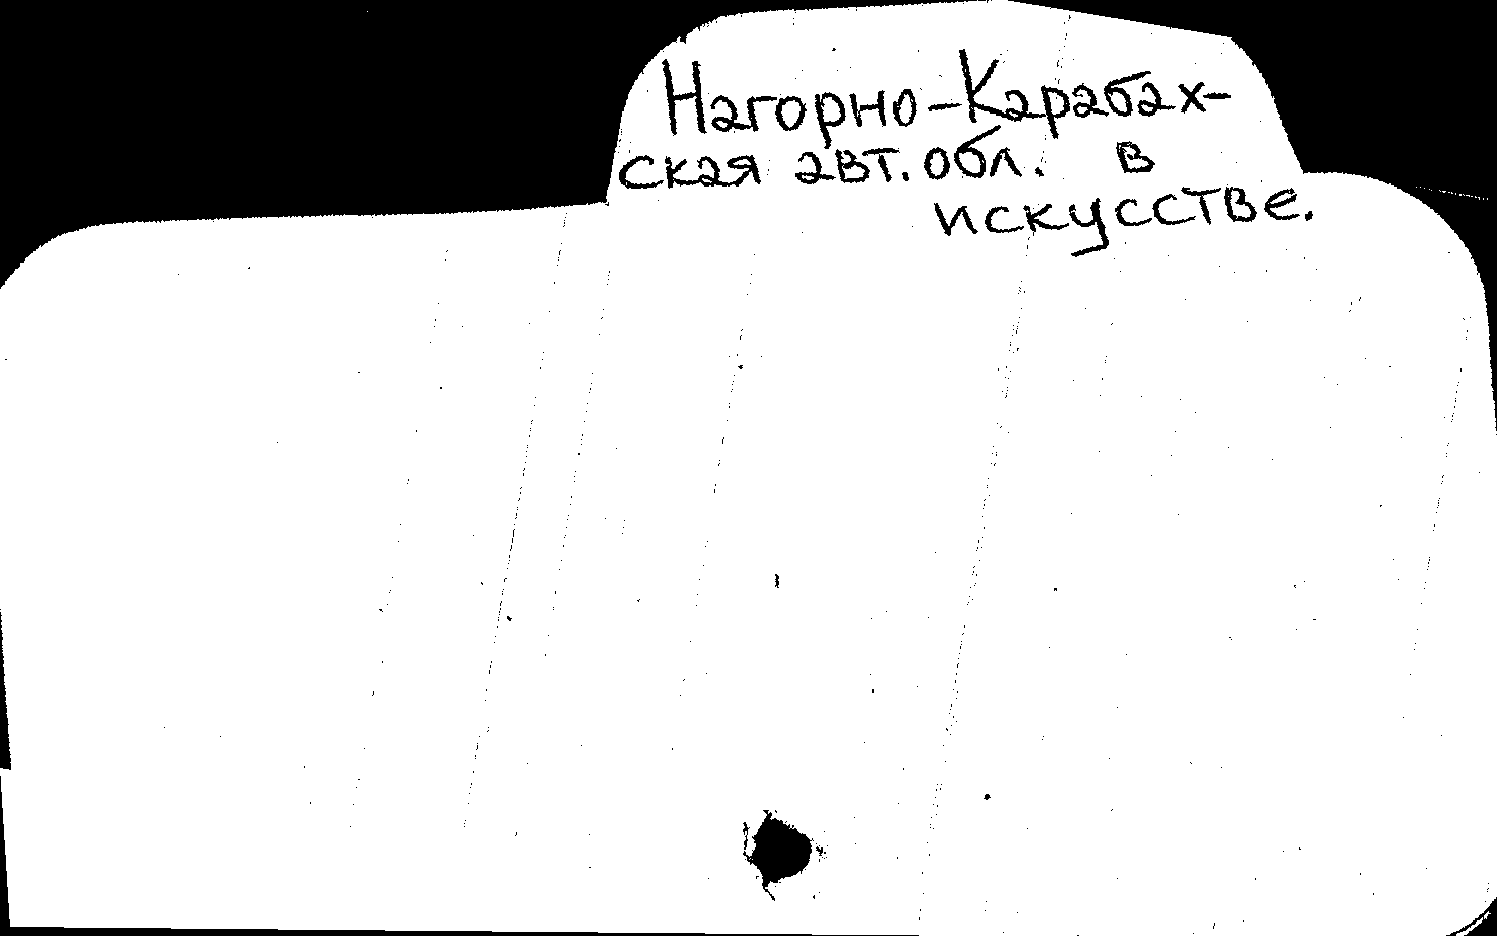 Нагорно-Карабах-
ская авт. обл. в
искусстве.